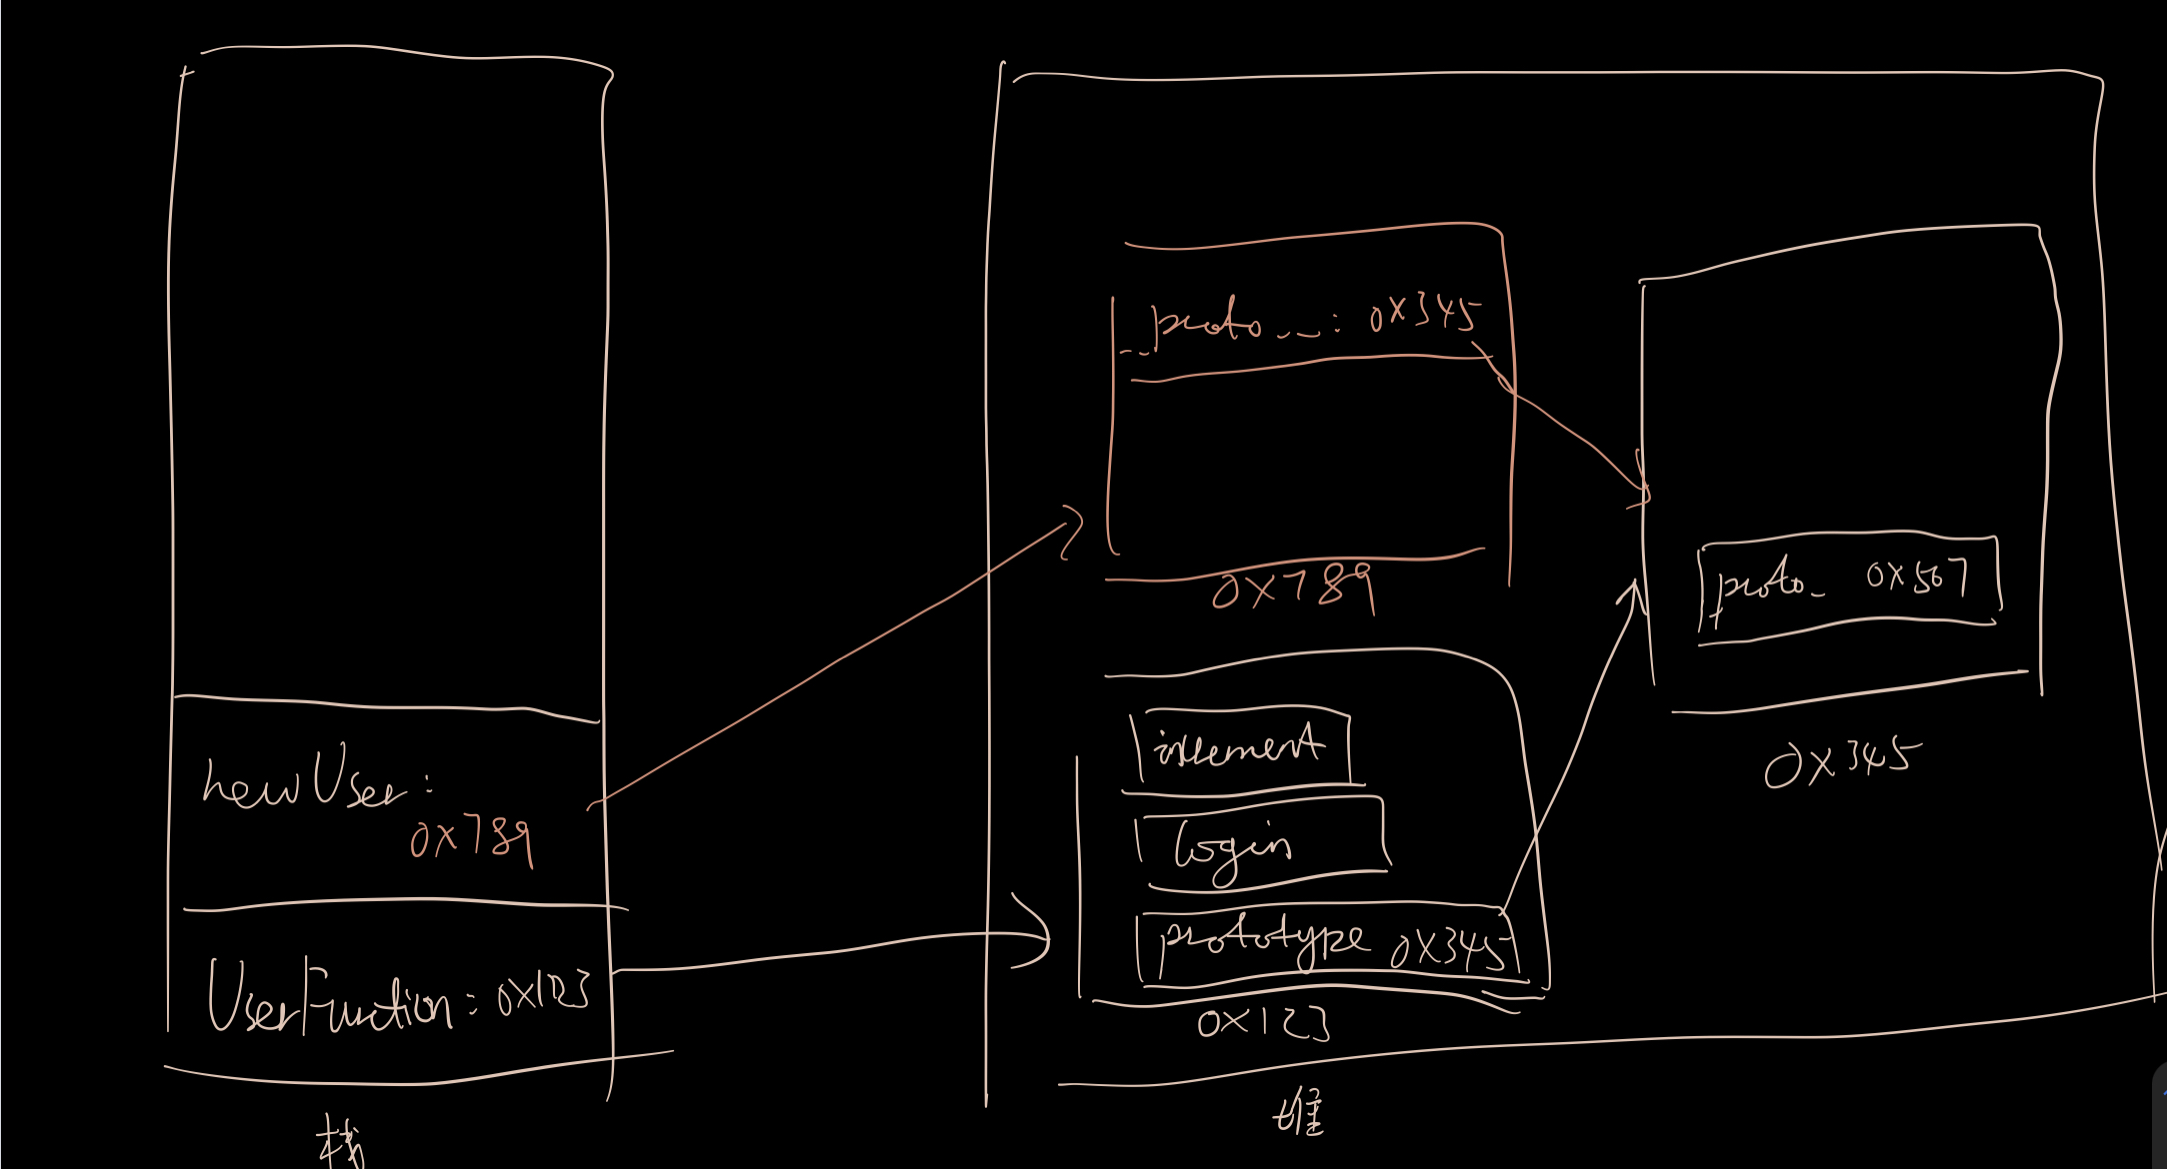 newUser:
0x789
UserFunction: 0x123
栈
__proto__: 0x345
0x789
increment
login
prototype 0x345
0x123
proto_ 0x567
0x345
堆